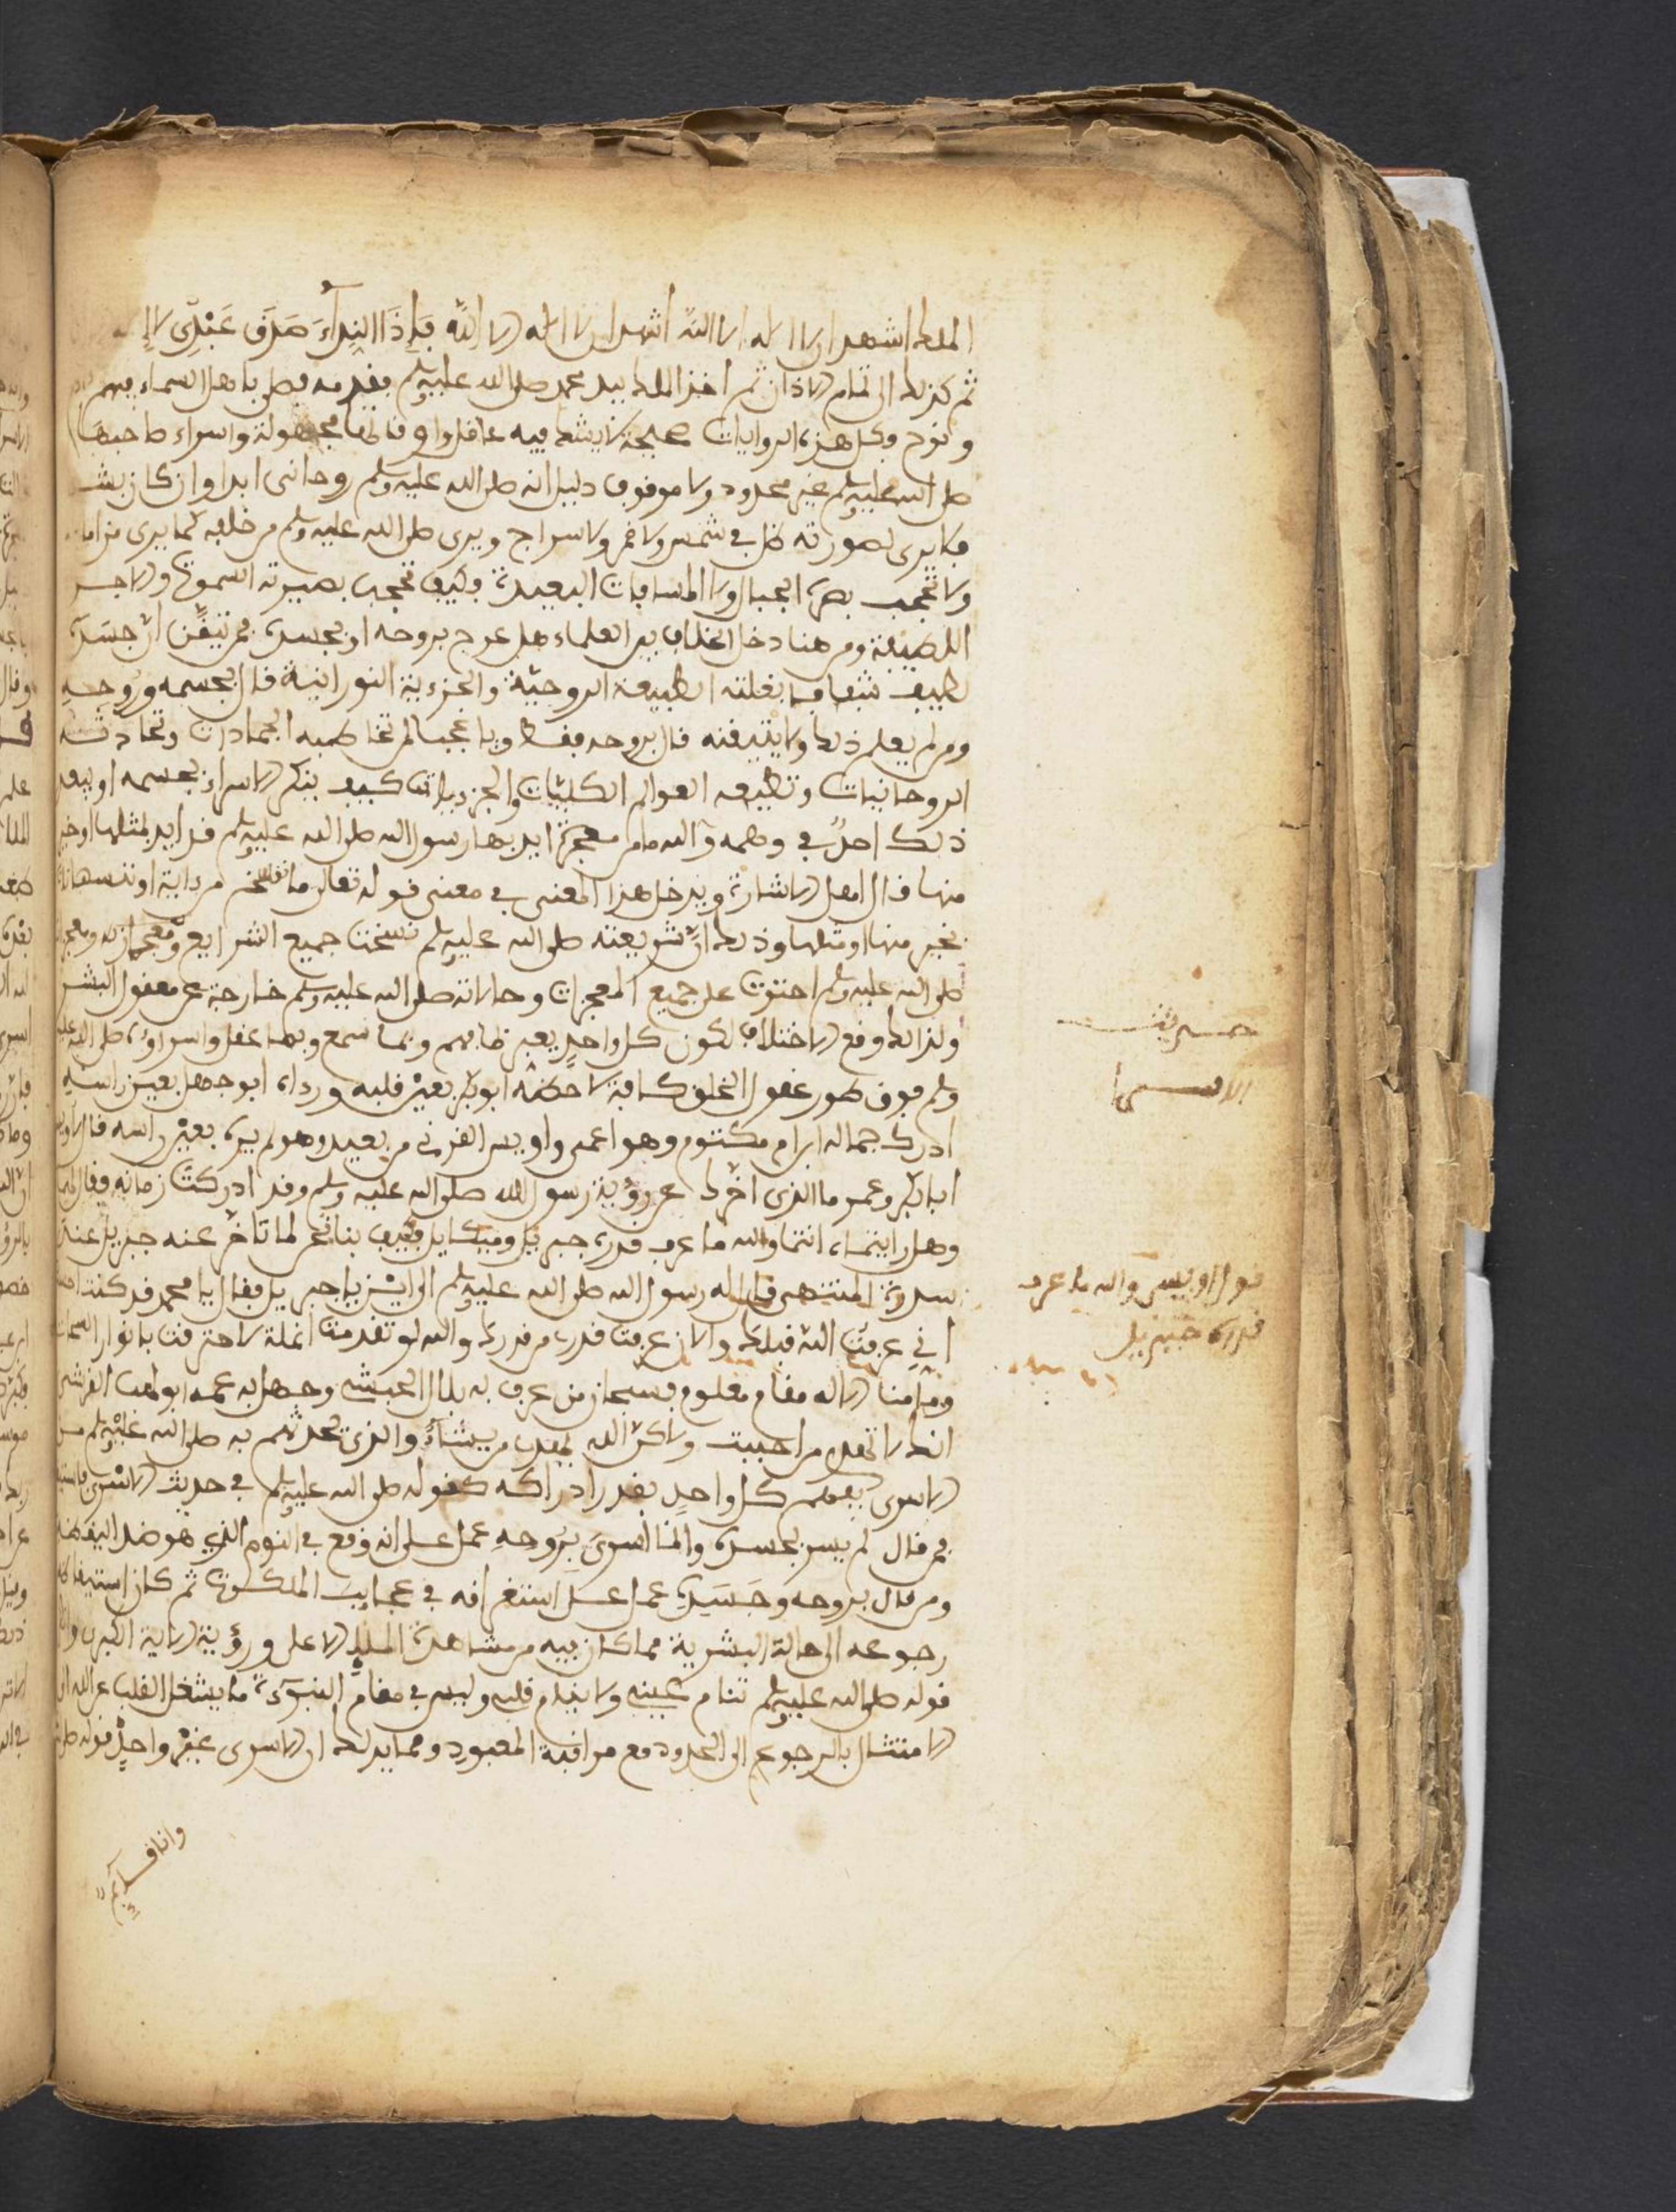 الملك اشهد ان لا اله الا الله اشهد ان لا اله الا الله فإذا النداء صدق عبدى لا إله
ثم كذلك الى تمام الاذان ثم اخذ الملك بيد محمد صلى الله عليه وسلم فقدمه فصلى باهل السماء فيهم
ونوح وكل هذه الروايات صحيحة لا يشك فيه عاقل واوقاتها مجهولة واسراء صاحبها
صلى الله عليه وسلم غير محدود ولا موقوف دليل انه صلى الله عليه وسلم روحانى ابدا وان كان بشرا
فلا يرى لصورته ظل في شمس ولا قمر ولا سراج ويرى صلى الله عليه وسلم من خلفه كما يرى من امامه
ولا تحجب بصره الجبال ولا المسافات البعيدة فكيف تحجب بصيرته السموات والاجسام
اللطيفة ومن هنا دخل الخلاف بين العلماء هل عرج بروحه او بجسده فمن تيقّن انّ جسَدَه
لطيف شفاف بغلبة الطبيعة الروحيّة والجزءية النورانية قال بجسمه وروحه
ومن لم يعلم ذلك ولا يتيقنه قال بروحه فقط ويا عجبا لمن تخاطبه الجمادات وتحادثه
الروحانيات وتطيعه العوالم الكليّات والجزءيات كيف ينكر الاسراء بجسمه او يبعد
ذلك احدٌ في وهمه والله ما من معجزة ايد بها رسول الا رسول الله صلى الله عليه وسلم قد ايد بمثلها او خير
منها قال اهل الاشارة ويدخل هذا المعنى في معنى قوله تعالى ما ننسخ من ءاية او ننسها نات
بخير منها او مثلها وذلك انّ شريعته صلى الله عليه وسلم نسخت جميع الشرايع ومعجزاته
صلى الله عليه وسلم احتوت على جميع المعجزات وحالاته صلى الله عليه وسلم خارجة عن معقول البشر
ولذلك وقع الاختلاف لكون كل واحدٍ يعبر بما فهم وبما سمع وبما عقل واسراؤه صلى الله عليه
وسلم فوق طور عقول الخلق كافة لاحظه ابو بكر بعين قلبه ورءاه ابو جهل بعين راسه
ادرك جماله ابن ام مكتوم وهو اعمى واويس القرني من بعيد وهو لم يره بعين راسه قال
ابا بكر وعمر ما الذى اخّرك عن رؤية رسول الله صلى الله عليه وسلم وقد ادركت زمانه فقال لهما
وهل رايتماه انتما والله ما عرف قدره جبريل وميكايل فكيف بنا نحن لما تاخّر عنه جبريل عند
سدرة المنتهى قال له رسول الله صلى الله عليه وسلم الى اين يا جبريل فقال يا محمد قد كنت
انّي عرفت الله قبلك والان عرفت قدره من قدرك والله لو تقدمت انملة لاحترقت بانوار السبحات
وما منا الا له مقام معلوم فسبحان من عرف به بلال الحبشي وجهل به عمه ابو لهب القرشي
انك لا تهدى من احببت ولاكنّ الله يهدى من يشاء والذى تحدثهم به صلى الله عليه وسلم من
الاسرى يفهم كل واحدٍ بقدر ادراكه كقوله صلى الله عليه وسلم في حديث الاسرى
فمن قال لم يسر بجسده وانما اسرى بروحه عمل على انه وقع في النوم الذي هو ضد اليقظة
ومن قال بروحه وجَسَدِه عمل على استغراقه في عجايب الملكوت ثم كان استيقاظه
رجوعه الى حالة البشرية مما كان فيه من مشاهدة الملإ الاعلى ورؤية الاية الكبرى
قوله صلى الله عليه وسلم تنام عينى ولا ينام قلبى وليس في مقام النبوءة ما يشغل القلب عن الله
الامتثال بالرجوع الى الحدود مع مراقبة المعبود ومما يدلك ان الاسرى غير واحدٍ قوله
وانا قايم
حديث
الاسرا
قول اويس والله ما عرف
قدره جبريل